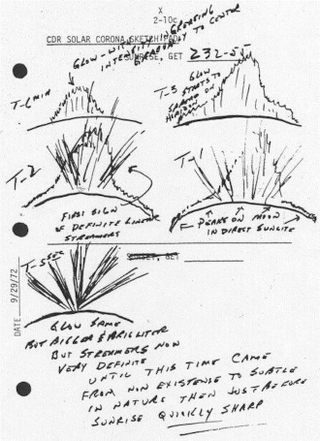 X
2-10c
CDR SOLAR CORONA SKETCH PAD
SUNRISE, GET 232-55
GLOW-WITH INCREASING
INTENSITY TO CENTER
T-6 MIN
T-3 GLOW
STARTS TO
SPREAD ON
HORIZON
T-2
FIRST SIGN
OF DEFINITE LINEAR
STREAMERS
T-1
PEAKS ON MOON
IN DIRECT SUNLITE
T-5 SEC
SUNSET, GET
DATE 9/29/72
GLOW SAME
BUT BIGGER & BRIGHTER
BUT STREAMERS NOW
VERY DEFINITE
UNTIL THIS TIME CAME
FROM NON EXISTENCE TO SUBTLE
IN NATURE THEN JUST BEFORE
SUNRISE QUICKLY SHARP